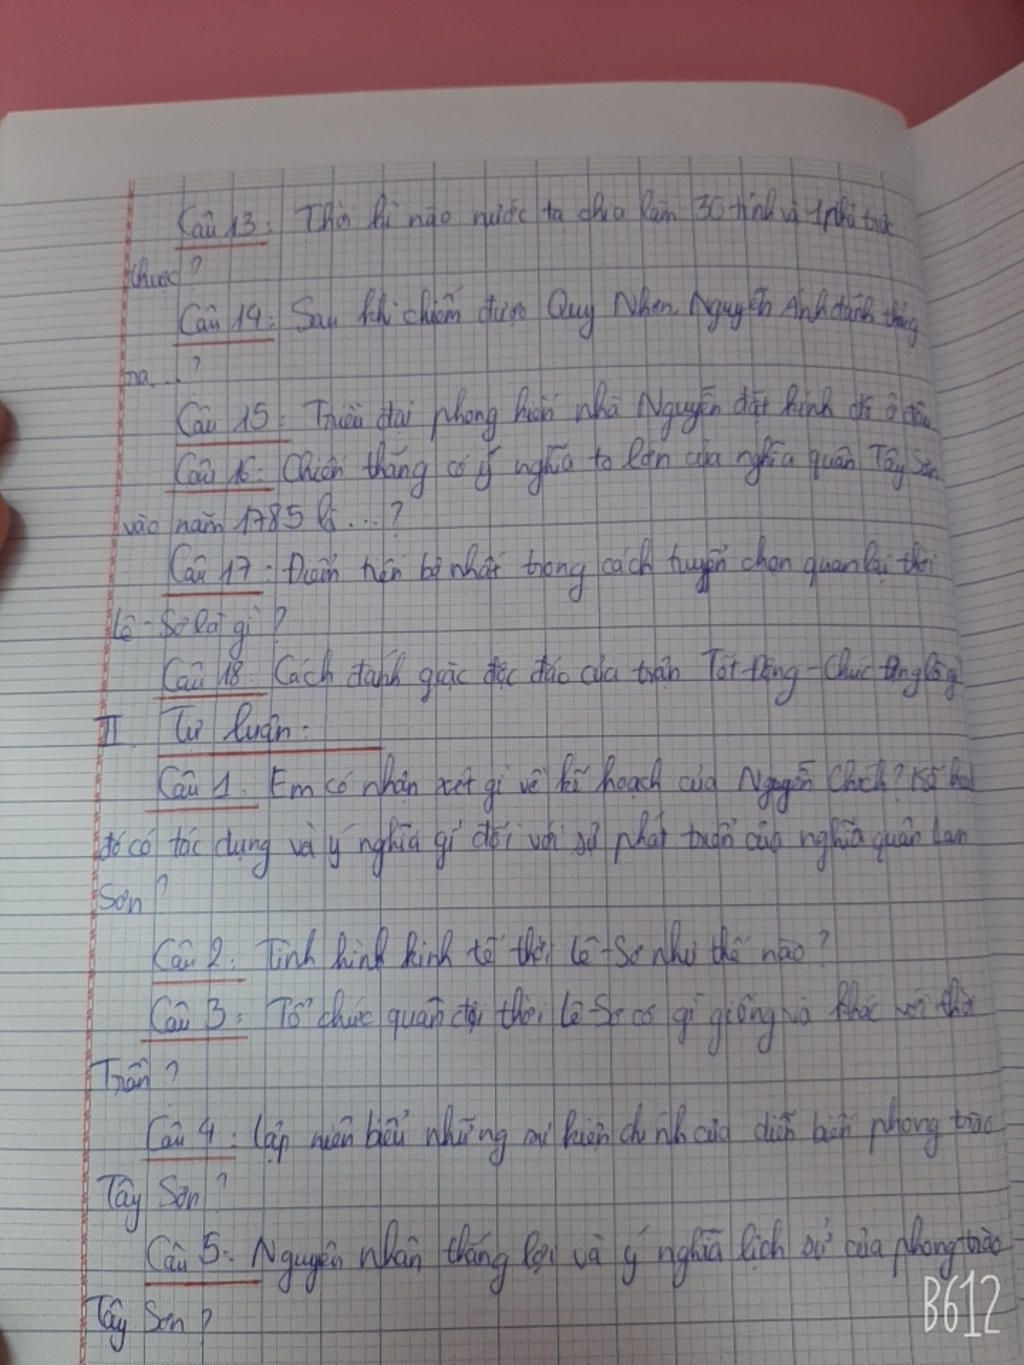 Câu 13: Thời kì nào nước ta chia làm 30 tỉnh và 1 phủ trực
thuộc?
Câu 14: Sau khi chiếm được Quy Nhơn, Nguyễn Ánh đánh thẳng
ra ...?
Câu 15: Triều đại phong kiến nhà Nguyễn đặt kinh đô ở đâu
Câu 16: Chiến thắng có ý nghĩa to lớn của nghĩa quân Tây Sơn
vào năm 1785 là ...?
Câu 17: Điểm tiến bộ nhất trong cách tuyển chọn quan lại thời
Lê-Sơ là gì?
Câu 18: Cách đánh giặc độc đáo của trận Tốt Động-Chúc Động là gì
II. Tự luận:
Câu 1: Em có nhận xét gì về kế hoạch của Nguyễn Chích? Kế hoạch
đó có tác dụng và ý nghĩa gì đối với sự phát triển của nghĩa quân Lam
Sơn?
Câu 2: Tình hình kinh tế thời Lê-Sơ như thế nào?
Câu 3: Tổ chức quân đội thời Lê-Sơ có gì giống và khác với thời
Trần?
Câu 4: Lập niên biểu những sự kiện chính của diễn biến phong trào
Tây Sơn?
Câu 5: Nguyên nhân thắng lợi và ý nghĩa lịch sử của phong trào
Tây Sơn?
B612